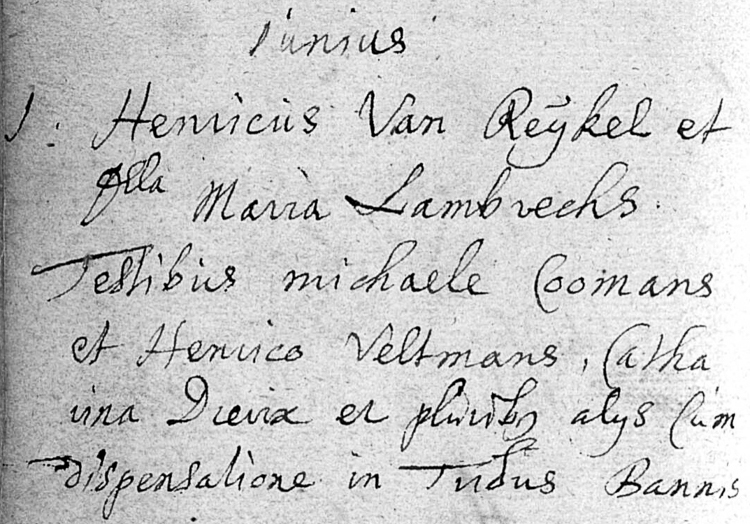 Junius
1. Henricus Van Reÿkel et
Maria Lambrechs.
Testibus michaele Coomans
et Henrico Veltmans, Catha
rina et pluribs alys Cum
dispensatione in Bannis